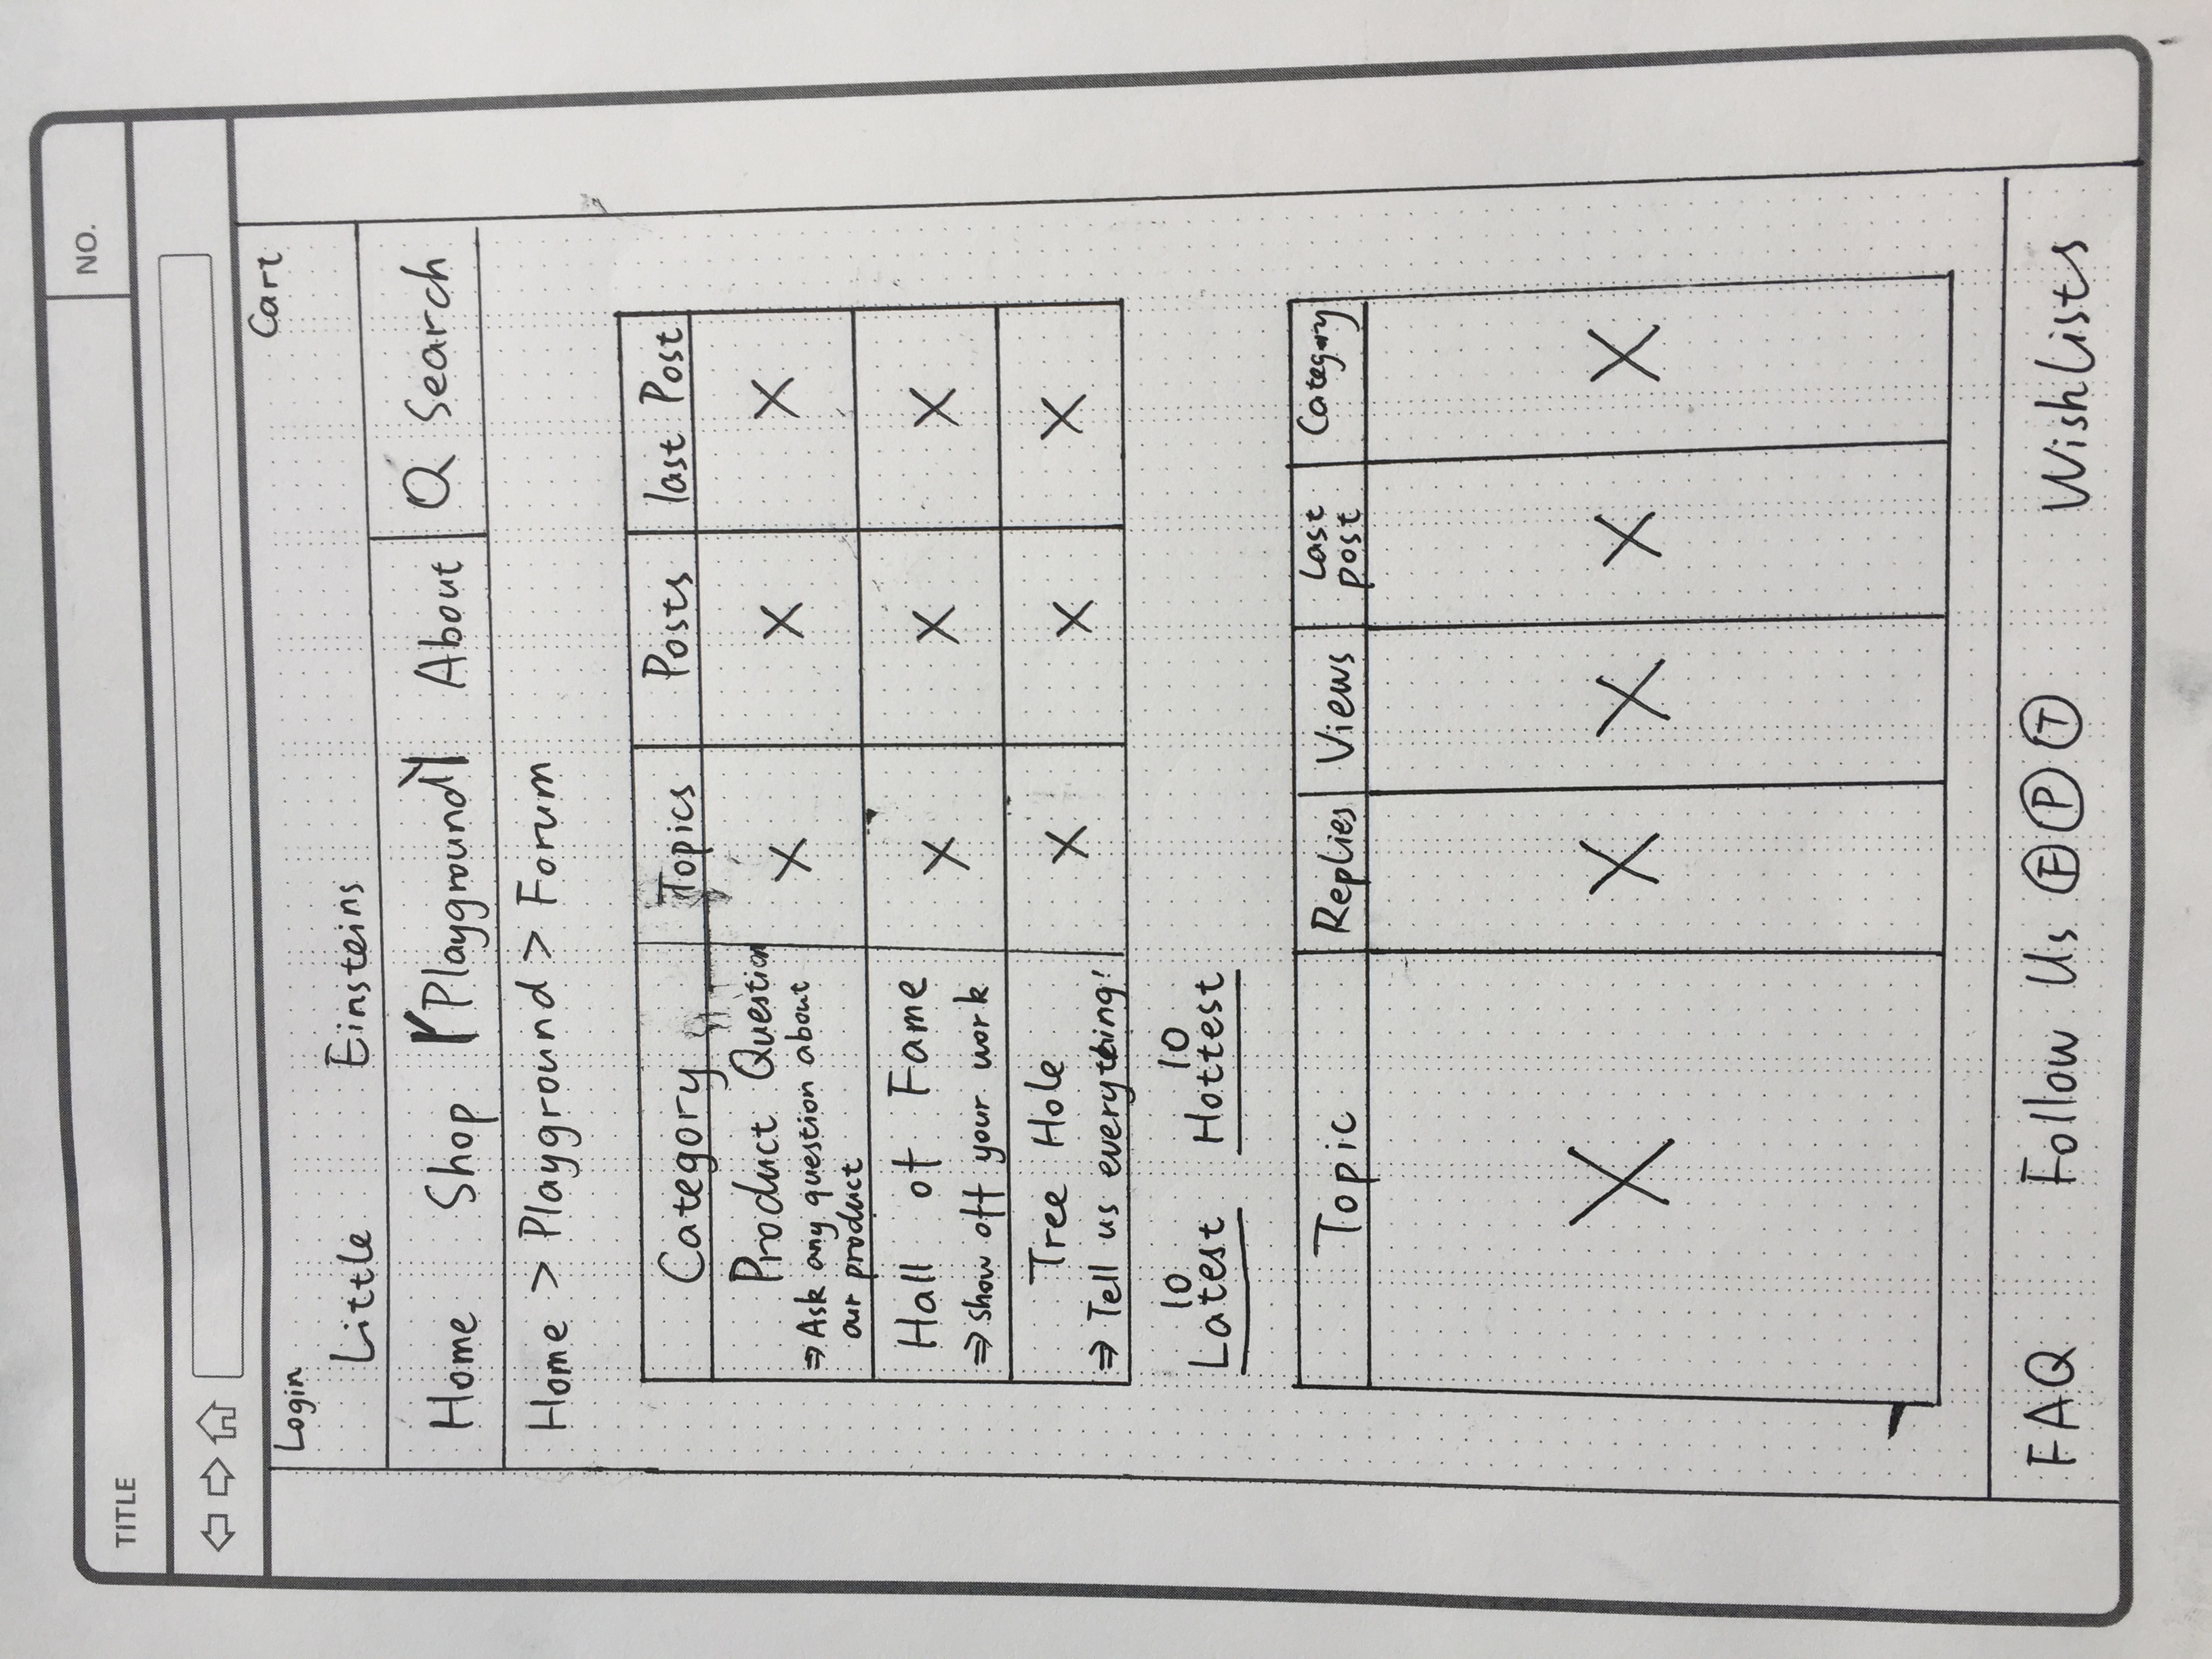 TITLE
NO.
Login
Cart
Little Einsteins
Home Shop Playground About Q Search
Home > Playground > Forum
Category Topics Posts last Post
Product Question X X X
⇒ Ask any question about
our product
Hall of Fame X X X
⇒ show off your work
Tree Hole X X X
⇒ Tell us everything!
10 10
Latest Hottest
Topic Replies Views Last post Category
X X X X X
FAQ Follow Us F P T Wishlists